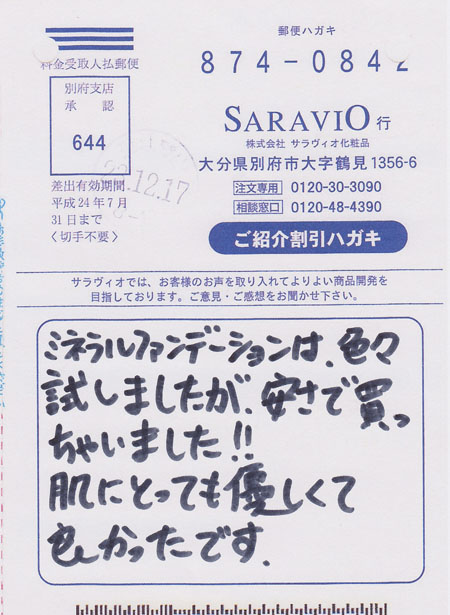 郵便ハガキ
料金受取人払郵便
874-0842
別府支店
承認
644
SARAVIO 行
株式会社 サラヴィオ化粧品
大分県別府市大字鶴見1356-6
22.12.17
差出有効期間
平成24年7月
31日まで
〈切手不要〉
注文専用 0120-30-3090
相談窓口 0120-48-4390
ご紹介割引ハガキ
サラヴィオでは、お客様のお声を取り入れてよりよい商品開発を
目指しております。ご意見・ご感想をお聞かせ下さい。
ミネラルファンデーションは、色々
試しましたが、安さで買っ
ちゃいました!!
肌にとっても優しくて
良かったです.